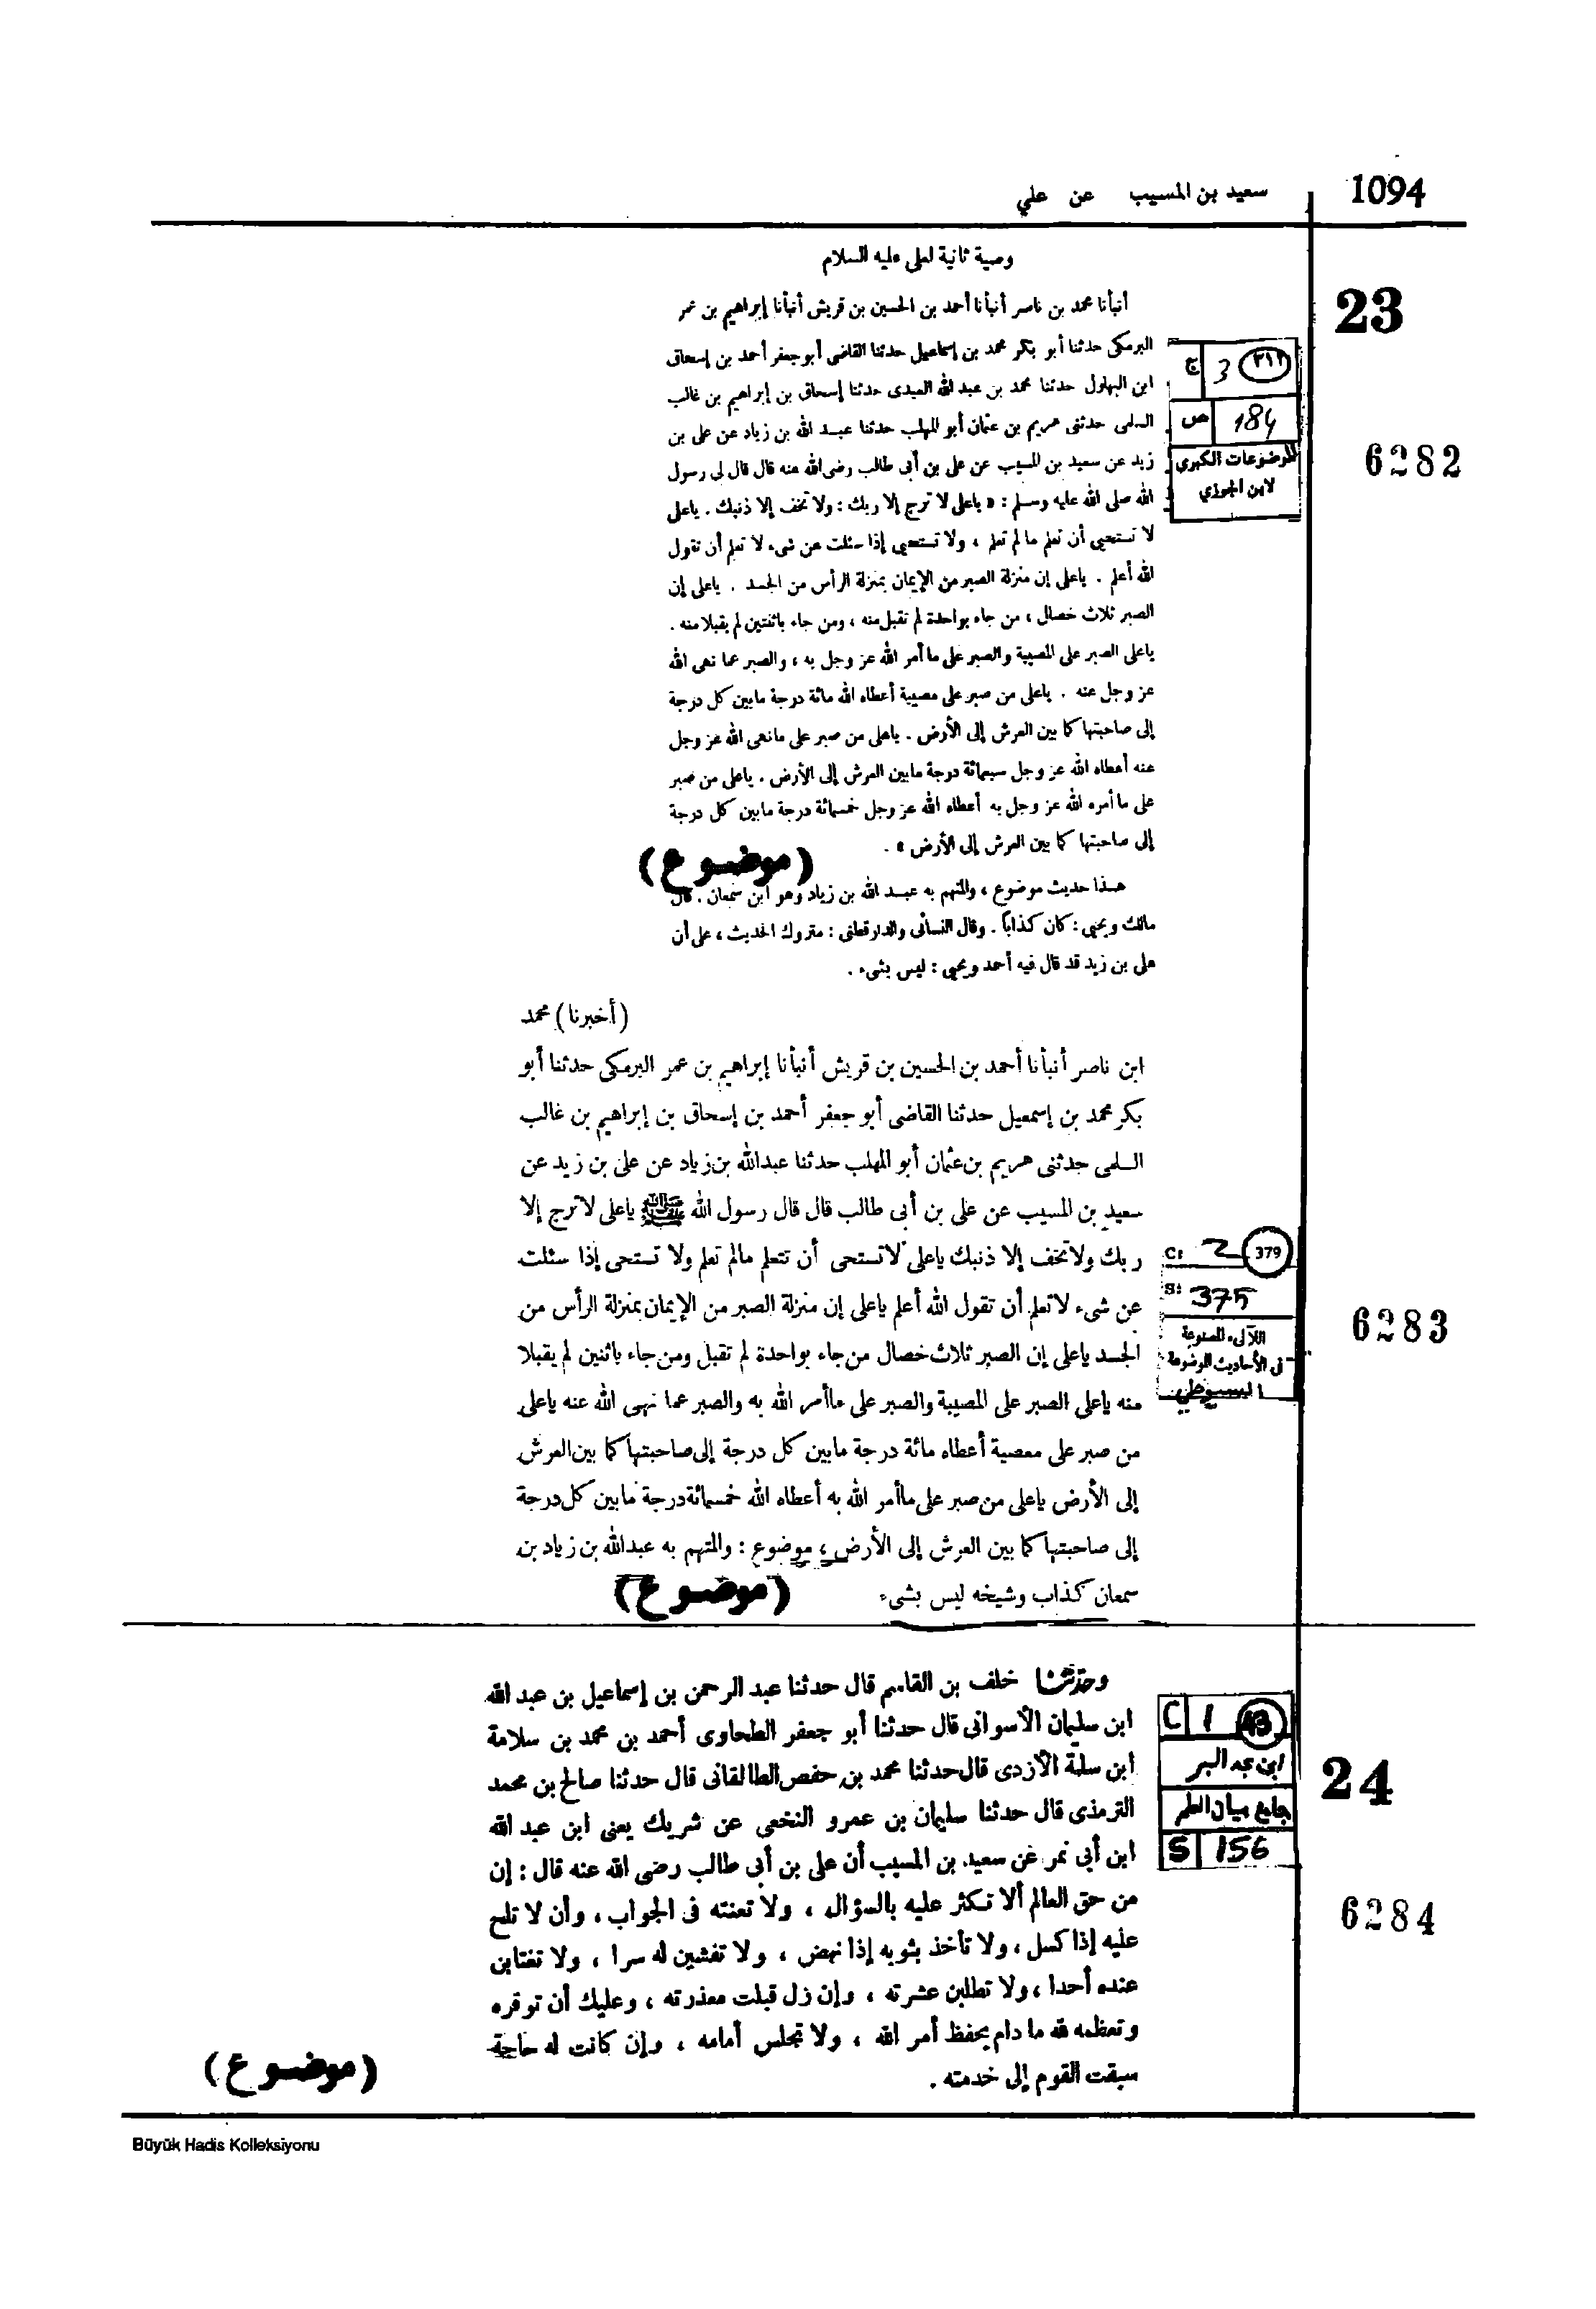 1094
سعيد بن المسيب عن علي
وصية ثانية لعلى عليه السلام
23
أنبأنا محمد بن ناصر أنبأنا أحمد بن الحسين بن قريش أنبأنا إبراهيم بن عمر
البرمكى حدثنا أبو بكر محمد بن إسماعيل حدثنا القاضى أبو جعفر أحمد بن إسحاق
ابن البهلول حدثنا محمد بن عبد الله العبدى حدثنا إسحاق بن إبراهيم بن غالب
السلمى حدثنى هريم بن عثمان أبو المهلب حدثنا عبد الله بن زياد عن على بن
زيد عن سعيد بن المسيب عن على بن أبى طالب رضى الله عنه قال قال لى رسول
الله صلى الله عليه وسلم : « ياعلى لا ترج إلا ربك : ولا تخف إلا ذنبك . ياعلى
لا تستحيى أن تعلم ما لم تعلم ، ولا تستحيى إذا سئلت عن شىء لا تعلم أن تقول
الله أعلم . ياعلى إن منزلة الصبر من الإيمان بمنزلة الرأس من الجسد . ياعلى إن
الصبر ثلاث خصال ، من جاء بواحدة لم تقبل منه ، ومن جاء باثنتين لم يقبلا منه .
ياعلى الصبر على المصيبة والصبر على ما أمر الله عز وجل به ، والصبر عما نهى الله
عز وجل عنه . ياعلى من صبر على مصيبة أعطاه الله مائة درجة مابين كل درجة
إلى صاحبتها كما بين العرش إلى الأرض . ياعلى من صبر على مانهى الله عز وجل
عنه أعطاه الله عز وجل سبعمائة درجة مابين العرش إلى الأرض . ياعلى من صبر
على ما أمره الله عز وجل به أعطاه الله عز وجل خمسمائة درجة مابين كل درجة
إلى صاحبتها كما بين العرش إلى الأرض » .
(موضوع)
هذا حديث موضوع ، والمتهم به عبد الله بن زياد وهو ابن سمعان . قال
مالك ويحيى : كان كذاباً . وقال النسائى والدارقطنى : متروك الحديث ، على أن
على بن زيد قد قال فيه أحمد ويحيى : ليس بشىء .
ج 3 ٣١٢
ص 184
الموضوعات الكبرى
لابن الجوزي
6282
(أخبرنا) محمد
ابن ناصر أنبأنا أحمد بن الحسين بن قريش أنبأنا إبراهيم بن عمر البرمكى حدثنا أبو
بكر محمد بن إسمعيل حدثنا القاضى أبو جعفر أحمد بن إسحاق بن إبراهيم بن غالب
السلمى حدثنى هريم بن عثمان أبو المهلب حدثنا عبدالله بن زياد عن على بن زيد عن
سعيد بن المسيب عن على بن أبى طالب قال قال رسول الله ﷺ ياعلى لاترج إلا
ربك ولاتخف إلا ذنبك ياعلى لاتستحى أن تتعلم مالم تعلم ولا تستحى إذا سئلت
عن شىء لاتعلم أن تقول الله أعلم ياعلى إن منزلة الصبر من الإيمان بمنزلة الرأس من
الجسد ياعلى إن الصبر ثلاث خصال من جاء بواحدة لم تقبل ومن جاء باثنين لم يقبلا
منه ياعلى الصبر على المصيبة والصبر على ماأمر الله به والصبر عما نهى الله عنه ياعلى
من صبر على معصية أعطاه مائة درجة مابين كل درجة إلى صاحبتها كما بين العرش
إلى الأرض ياعلى من صبر على ماأمر الله به أعطاه الله خمسمائة درجة مابين كل درجة
إلى صاحبتها كما بين العرش إلى الأرض ، موضوع : والمتهم به عبدالله بن زياد بن
سمعان كذاب وشيخه ليس بشىء
(موضوع)
C: 2 379
S: 375
اللآلىء المصنوعة
فى الأحاديث الموضوعة
السيوطي
6283
وحدثنا خلف بن القاسم قال حدثنا عبد الرحمن بن إسماعيل بن عبد الله
ابن سليمان الأسوانى قال حدثنا أبو جعفر الطحاوى أحمد بن محمد بن سلامة
ابن سلمة الأزدى قال حدثنا محمد بن حفص الطالقانى قال حدثنا صالح بن محمد
الترمذى قال حدثنا سليمان بن عمرو النخعى عن شريك يعنى ابن عبد الله
ابن أبى نمر عن سعيد بن المسيب أن على بن أبى طالب رضى الله عنه قال : إن
من حق العالم ألا تكثر عليه بالسؤال ، ولا تعنته فى الجواب ، وأن لا تلح
عليه إذا كسل ، ولا تأخذ بثوبه إذا نهض ، ولا تفشين له سرا ، ولا تغتابن
عنده أحدا ، ولا تطلبن عثرته ، وإن زل قبلت معذرته ، وعليك أن توقره
وتعظمه لله ما دام يحفظ أمر الله ، ولا تجلس أمامه ، وإن كانت له حاجة
سبقت القوم إلى خدمته .
(موضوع)
C 1 43
ابن عبد البر
جامع بيان العلم
S 156
24
6284
Büyük Hadis Kolleksiyonu